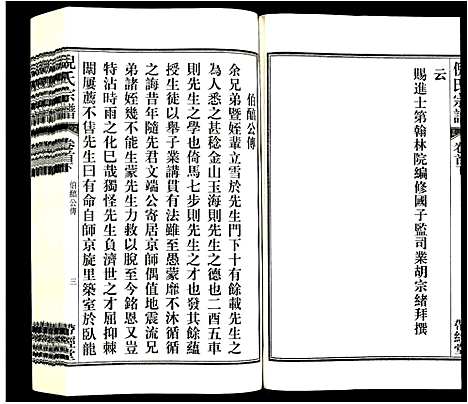 倪氏宗譜
卷首下
帶經堂
云
賜進士第翰林院編修國子監司業胡宗緒拜撰
伯醇公傳
余兄弟暨姪輩立雪於先生門下十有餘載先生之
為人悉之甚稔金山玉海則先生之德也二酉五車
則先生之學也倚馬七步則先生之才也發其餘蘊
授生徒以舉子業講貫有法雖至愚蒙靡不沐循循
之誨昔年隨先君文端公寄居京師偶值地震流兄
弟諸姪幾不能生蒙先生力救以脫至今銘恩又豈
特沾時雨之化巳哉獨怪先生負濟世之才抑棘
闈屢薦不售先生曰有命自師京旋里築室於臥龍
倪氏宗譜
卷首下
伯醇公傳
三
帶經堂